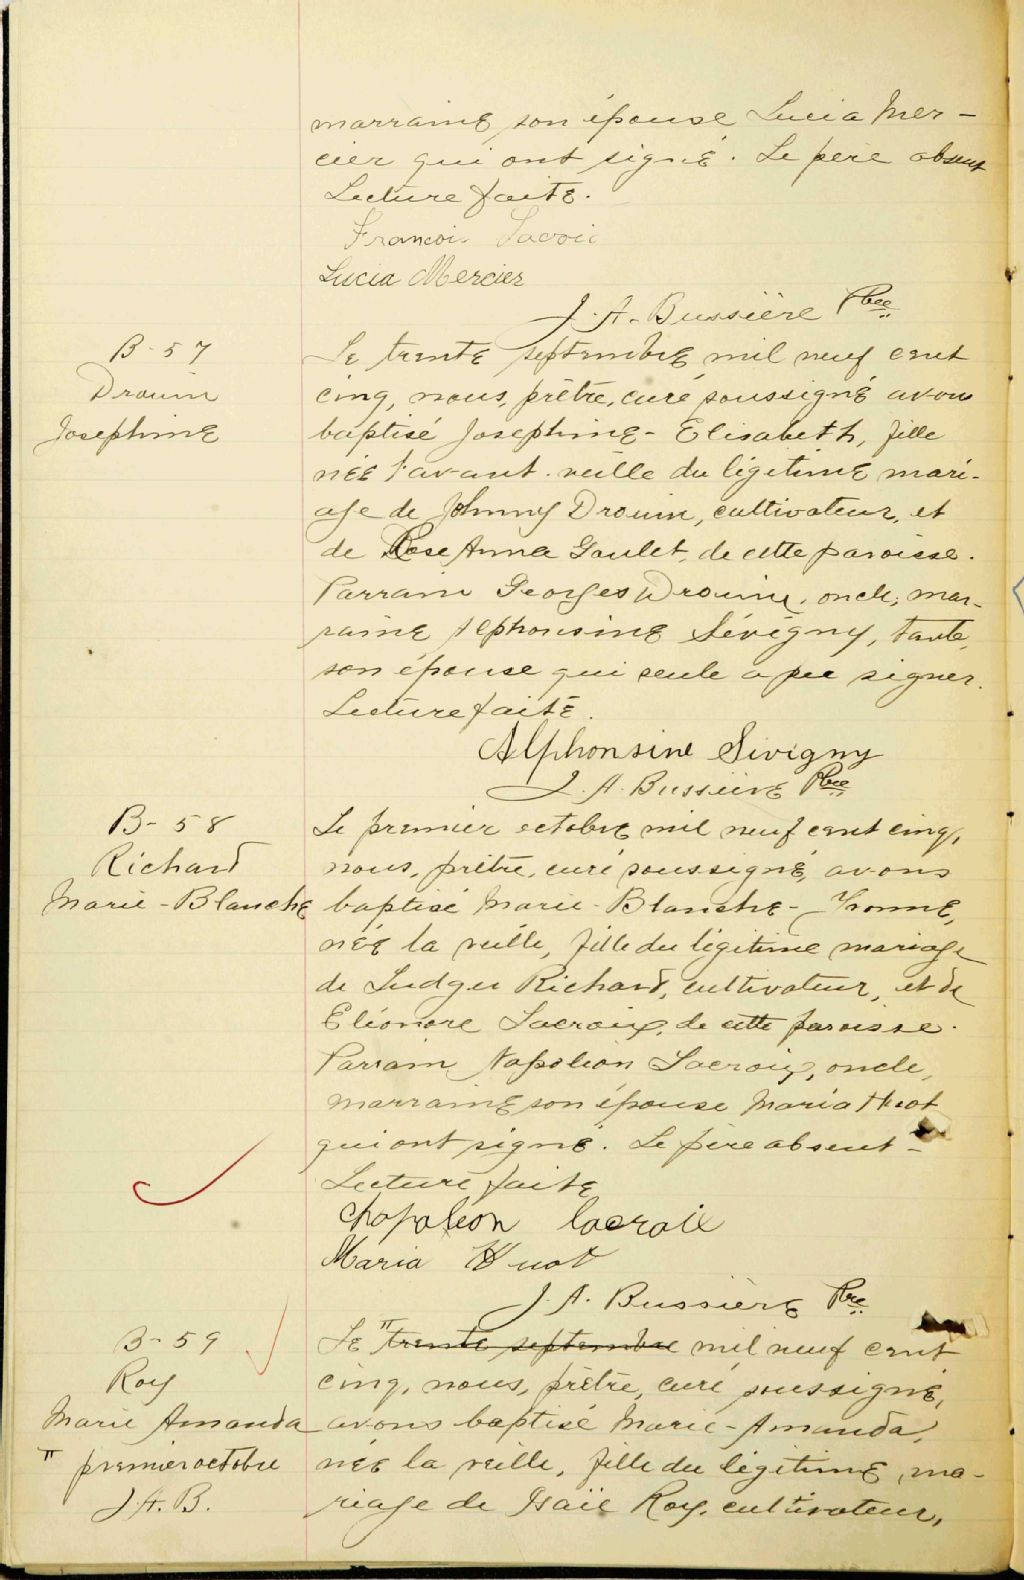 marraine son épouse Lucia Mer-
cier qui ont signé. Le père absent
Lecture faite.
Francois Lacroix
Lucia Mercier
J. A. Bussière Ptre
B-57
Drouin
Josephine
Le trente septembre mil neuf cent
cinq, nous, prêtre, curé soussigné avons
baptisé Josephine-Elisabeth, fille
née l'avant-veille du légitime mari-
age de Johnny Drouin, cultivateur, et
de Rose Anna Goulet, de cette paroisse.
Parrain Georges Drouin, oncle, mar-
raine Alphonsine Sévigny, tante,
son épouse qui seule a pu signer.
Lecture faite.
Alphonsine Sévigny
J. A. Bussière Ptre
B-58
Richard
Marie-Blanche
Le premier octobre mil neuf cent cinq,
nous, prêtre, curé soussigné, avons
baptisé Marie-Blanche-Yvonne,
née la veille, fille du légitime mariage
de Ludger Richard, cultivateur, et de
Eléonore Lacroix, de cette paroisse.
Parrain Napoléon Lacroix, oncle,
marraine son épouse Maria Huot
qui ont signé. Le père absent-
Lecture faite
Napoléon lacroix
Maria Huot
J. A. Bussière Ptre
B-59
Roy
Marie Amanda
" premier octobre
J. A. B.
Le " trente septembre mil neuf cent
cinq, nous, prêtre, curé soussigné,
avons baptisé Marie-Amanda,
née la veille, fille du légitime ma-
riage de Isaïe Roy, cultivateur,